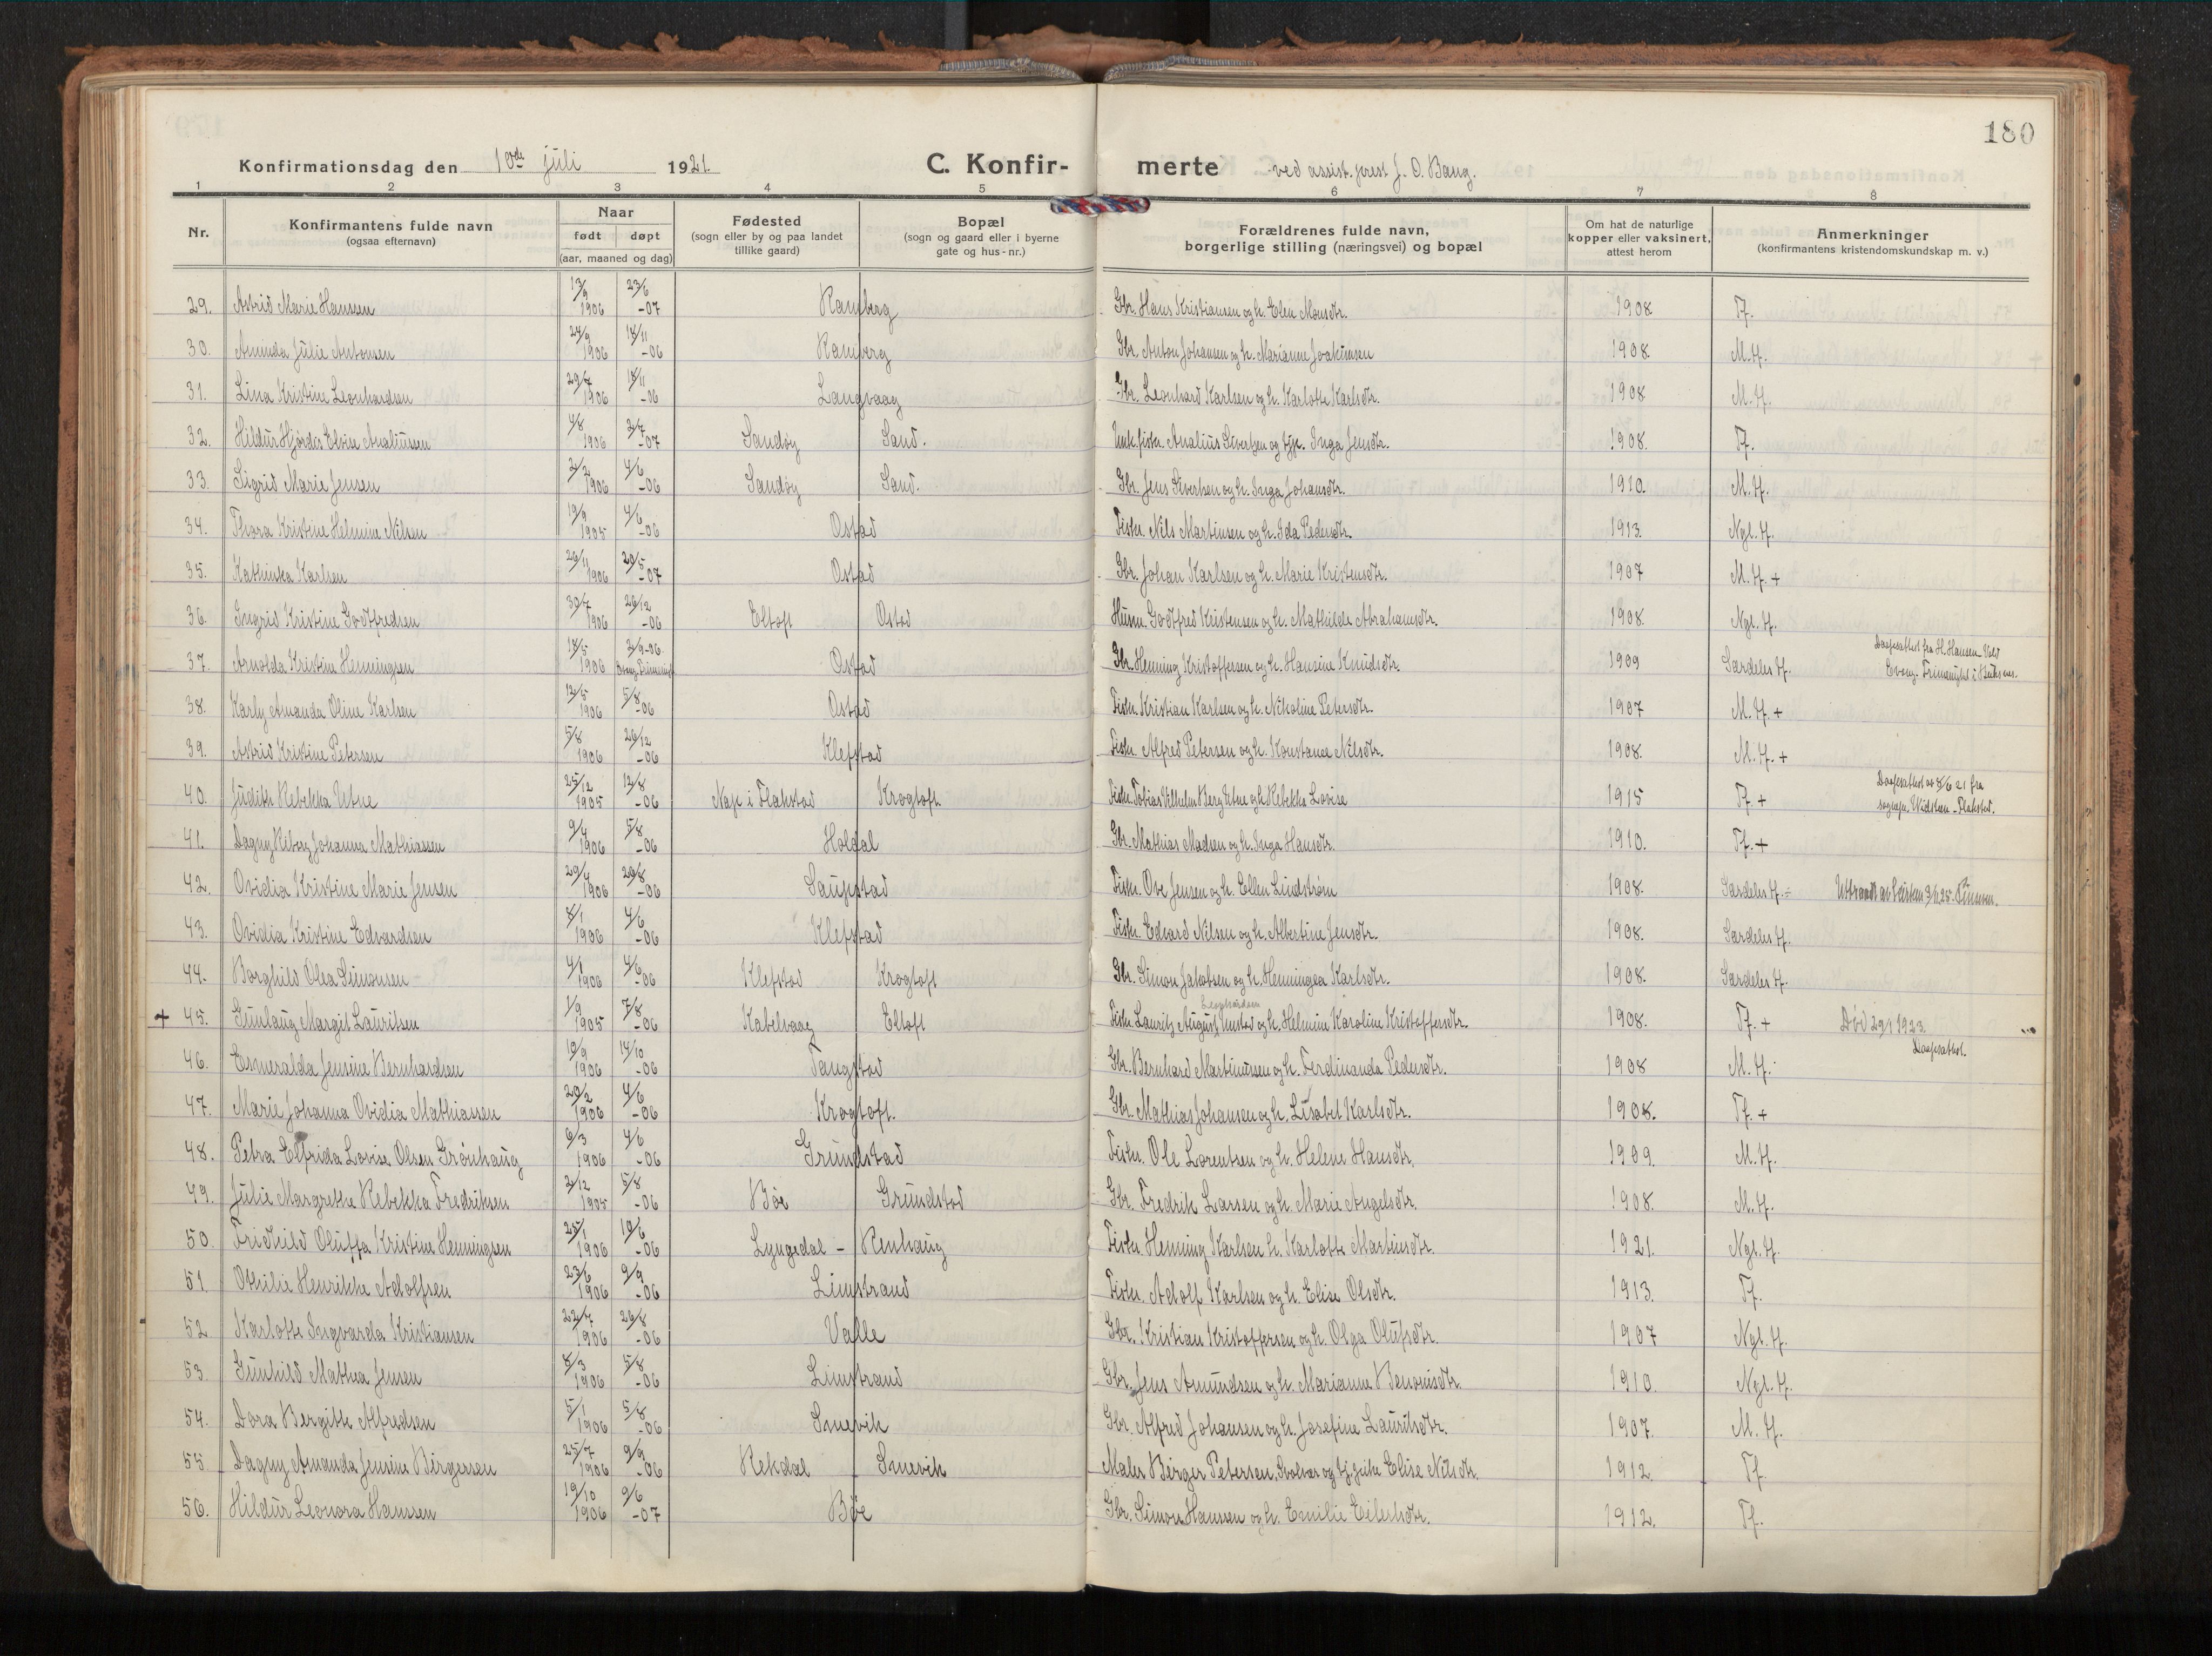 180
Konfirmationsdag den 10de juli 1921. C. Konfir- merte ved assist. prest J. O. Bang.
1 2 3 4 5 6 7 8
Nr. Konfirmantens fulde navn (ogsaa efternavn) Naar født døpt (aar, maaned og dag) Fødested (sogn eller by og paa landet tillike gaard) Bopæl (sogn og gaard eller i byerne gate og hus-nr.) Forældrenes fulde navn, borgerlige stilling (næringsvei) og bopæl Om hat de naturlige kopper eller vaksinert, attest herom Anmerkninger (konfirmantens kristendomskundskap m. v.)
29. Astrid Marie Hansen 13/9 1906 23/6 -07 Ramberg Gbr. Hans Kristiansen og h. Elen Monsdtr. 1908 Tf.
30. Aminda Julie Antonsen 24/9 1906 18/11 -06 Ramberg Gbr. Anton Johansen og h. Marianne Joakimsen 1908. M.tf.
31. Lina Kristine Leonhardsen 29/7 1906 18/11 -06 Langvaag Gbr. Leonhard Karlsen og h. Karlotte Karlsdtr. 1908 M.tf.
32. Hildur Hjørdis Elvise Analiussen 4/8 1906 -07 Sandøy Sand. Analius Sivertsen og Inga Jensdtr. 1908. Tf.
33. Sigrid Marie Jensen 2/2 1906 4/6 -06 Sandøy Sand. Gbr. Jens Sivertsen og h. Inga Johansdtr. 1910. M.tf.
34. Thora Kristine Helmine Nilsen 19/9 1905 4/6 -06 Ostad Fisker. Nils Martinsen og h. Ida Pedersdtr. 1913. Ngl. tf.
35. Kathinka Karlsen 26/11 1906 20/5 -07 Ostad Gbr. Johan Karlsen og h. Marie Kristensdtr. 1907 M.tf. +
36. Ingrid Kristine Godtfredsen 30/7 1906 26/12 -06 Eltoft Ostad Husm. Godtfred Kristensen og h. Mathilde Abrahamsdtr. 1908. Ngl. tf.
37. Arnolda Kristine Henningsen 18/5 1906 2/9-06 Ostad Gbr. Henning Kristoffersen og h. Hansine Knudsdtr. 1909 Særdeles tf. Daapsattest fra H. Hansen-Vold Evang. Frimenighet i Buksnes.
38. Karly Amanda Oline Karlsen 12/5 1906 5/8 -06 Ostad Fisker. Kristian Karlsen og h. Nikoline Petersdtr. 1907 M.tf. +
39. Astrid Kristine Petersen 5/8 1906 26/12 -06 Klefstad Fisker. Alfred Petersen og h. Konstanse Nilsdtr. 1908. M.tf. +
40. Judith Rebekka Utne 25/12 1905 12/8 -06 Nap i Flakstad Krogtoft Fisker. Tobias Vilhelm Berg Utne og h. Rebekka Lovise 1915 Tf. + Daapsattest av 8/6 21 fra sognepr. Widsteen-Flakstad.
41. Dagny Riborg Johanna Mathiassen 9/4 1906 5/8 -06 Holdal Gbr. Mathias Madsen og h. Inga Hansdtr. 1910. Tf. +
42. Ovidia Kristine Marie Jensen 29/4 1906 26/8 -06 Saupstad Fisker. Ove Jensen og h. Ellen Lindstrøm 1908. Særdeles tf. Uttraadt av kirken 3/6 25.
43. Ovidia Kristine Edvardsen 8/1 1906 4/6 -06 Klefstad Fisker. Edvard Nilsen og h. Albertine Jensdtr. 1908. Særdeles tf.
44. Borghild Olea Simonsen 4/1 1906 4/6 -06 Klefstad Krogtoft Gbr. Simon Jakobsen og h. Henningea Karlsdtr. 1908. Særdeles tf.
+ 45. Gunlaug Margit Lauritsen 1/9 1905 7/8 -06 Kabelvaag Eltoft Fisker Lauritz August Leonhardsen Unstad og h. Helmine Karoline Kristoffersdtr. 1908. Tf. + Død 29/1 1923.
46. Esmeralda Jensine Bernhardsen 10/9 1906 14/10 -06 Tangstad Gbr. Bernhard Martinussen og h. Ferdinanda Pedersdtr. 1908 M.tf. Daapsattest.
47. Marie Johanna Ovidia Mathiassen 20/2 1906 4/6 -06 Krogtoft. Gbr. Mathias Johansen og h. Lisabet Karlsdtr. 1908. Tf. +
48. Petra Elfrida Lovise Olsen Grønhaug 6/3 1906 4/6 -06 Grundstad Fisker. Ole Lorentsen og h. Helene Hansdtr. 1909. M.tf.
49. Julie Margrethe Rebekka Fredriksen 2/12 1905 5/8 -06 Bøe Grundstad Gbr. Fredrik Larsen og h. Marie Angelsdtr. 1908. M.tf.
50. Fridhild Oluffa Kristine Henningsen 25/1 1906 10/6 -06 Lyngedal - Renhaug Fisker. Henning Karlsen h. Karlotte Martinsdtr. 1921. Ngl. tf.
51. Othilie Henrikke Adolfsen 23/6 1906 9/9 -06 Limstrand Fisker. Adolf Karlsen og h. Elise Olsdtr. 1913. Tf.
52. Karlotte Ingvarda Kristiansen 22/7 1906 26/8 -06 Valle Gbr. Kristian Kristoffersen og h. Olga Olufsdtr. 1907 Ngl. tf.
53. Gunhild Mathea Jensen 8/3 1906 5/8 -06 Limstrand Gbr. Jens Amundsen og h. Marianne Benonisdtr. 1910. Ngl. tf.
54. Dora Bergitte Alfredsen 5/1 1906 5/8 -06 Smevik Gbr. Alfred Johansen og h. Josefine Lauritsdtr. 1907. M.tf.
55. Dagny Amanda Jensine Birgersen 25/7 1906 9/9 -06 Rekdal Smevik Maler Birger Petersen, Svolvær og Elise Nilsdtr. 1912. Tf.
56. Hildur Leonora Hansen 19/10 1906 9/6 -07 Bøe Gbr. Simon Hansen og h. Emilie Eilertsdtr. 1912. Tf.